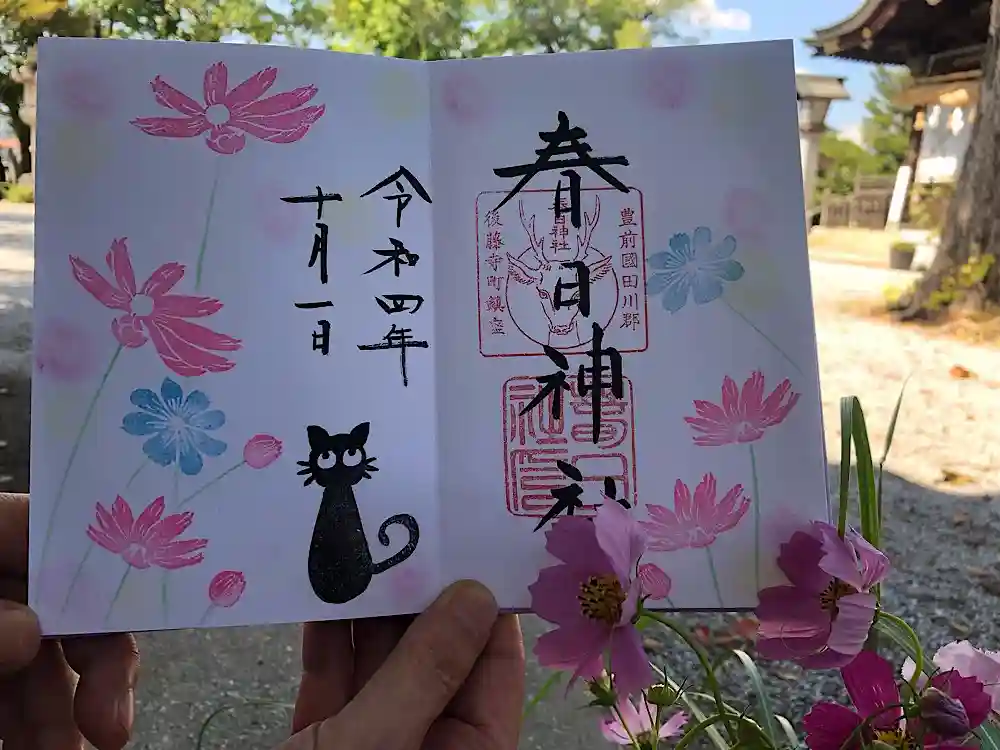 春日神社
豊前國田川郡
春日神社
後藤寺町鎮座
令和四年
十月一日